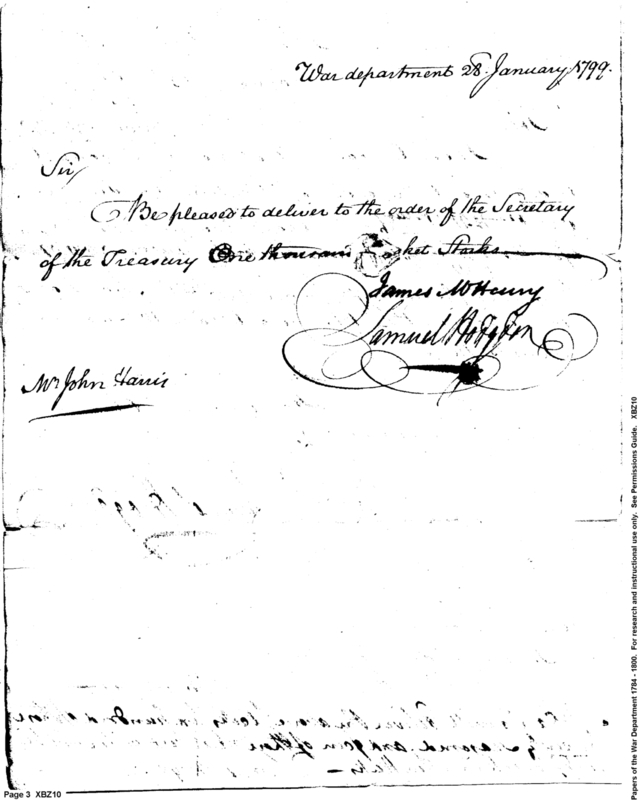 War department 28. January, 1799.
Sir
Be pleased to deliver to the order of the Secretary
of the Treasury One thousand Musket Stocks
James McHenry
Samuel Hodgdon
Mr John Harris
Page 3 XBZ10
Papers of the War Department 1784 - 1800. For research and instructional use only. See Permissions Guide. XBZ10